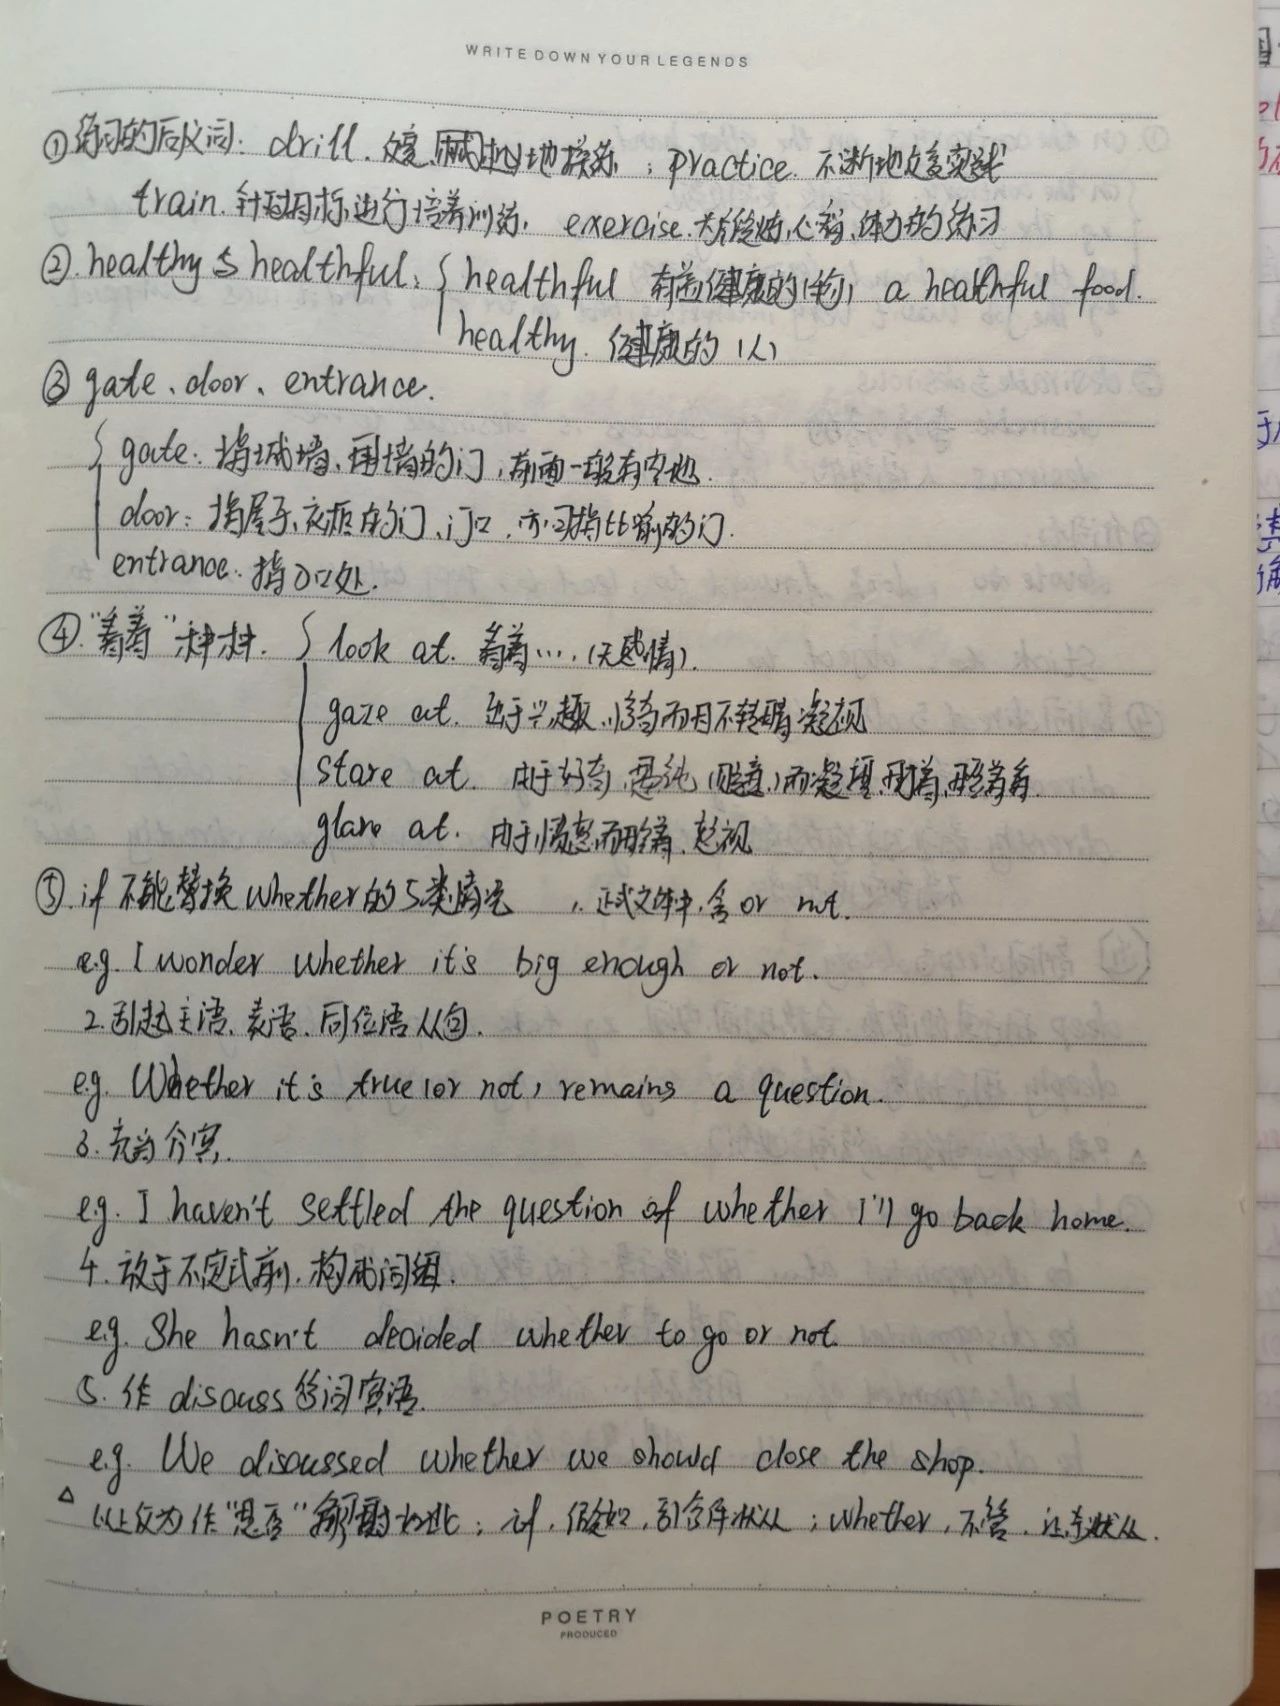 WRITE DOWN YOUR LEGENDS
① 练习的 : drill. 地操练 ; practice. 不断地反复实践
train. 针对目标进行培养训练, exercise. 体力的练习
② healthy与healthful: healthful 有益健康的(物) a healthful food.
healthy. 健康的 (人)
③ gate、door、entrance.
gate: 指城墙、围墙的门,前面一般有空地.
door: 指屋子、衣柜的门、门口,
entrance: 指入口处.
④ "看着" look at. 看着…. (无感情).
gaze at. 出于兴趣, 而目不转睛凝视
stare at. 由于好奇,
glare at. 由于愤怒而
⑤ if 不能替换 whether 的5类情况 1. 正式文体中,含or not.
e.g. I wonder whether it's big enough or not.
2. 引起主语、表语、同位语从句.
e.g. Whether it's true (or not) remains a question.
3. 充当介宾.
e.g. I haven't settled the question of whether I'll go back home.
4. 放于不定式前,构成词组.
e.g. She hasn't decided whether to go or not
5. 作 discuss 等词宾语.
e.g. We discussed whether we should close the shop.
△ 以上仅为作"是否" ; if, 假如,引条件状从 ; whether, 不管, 让步状从.
POETRY
PRODUCED